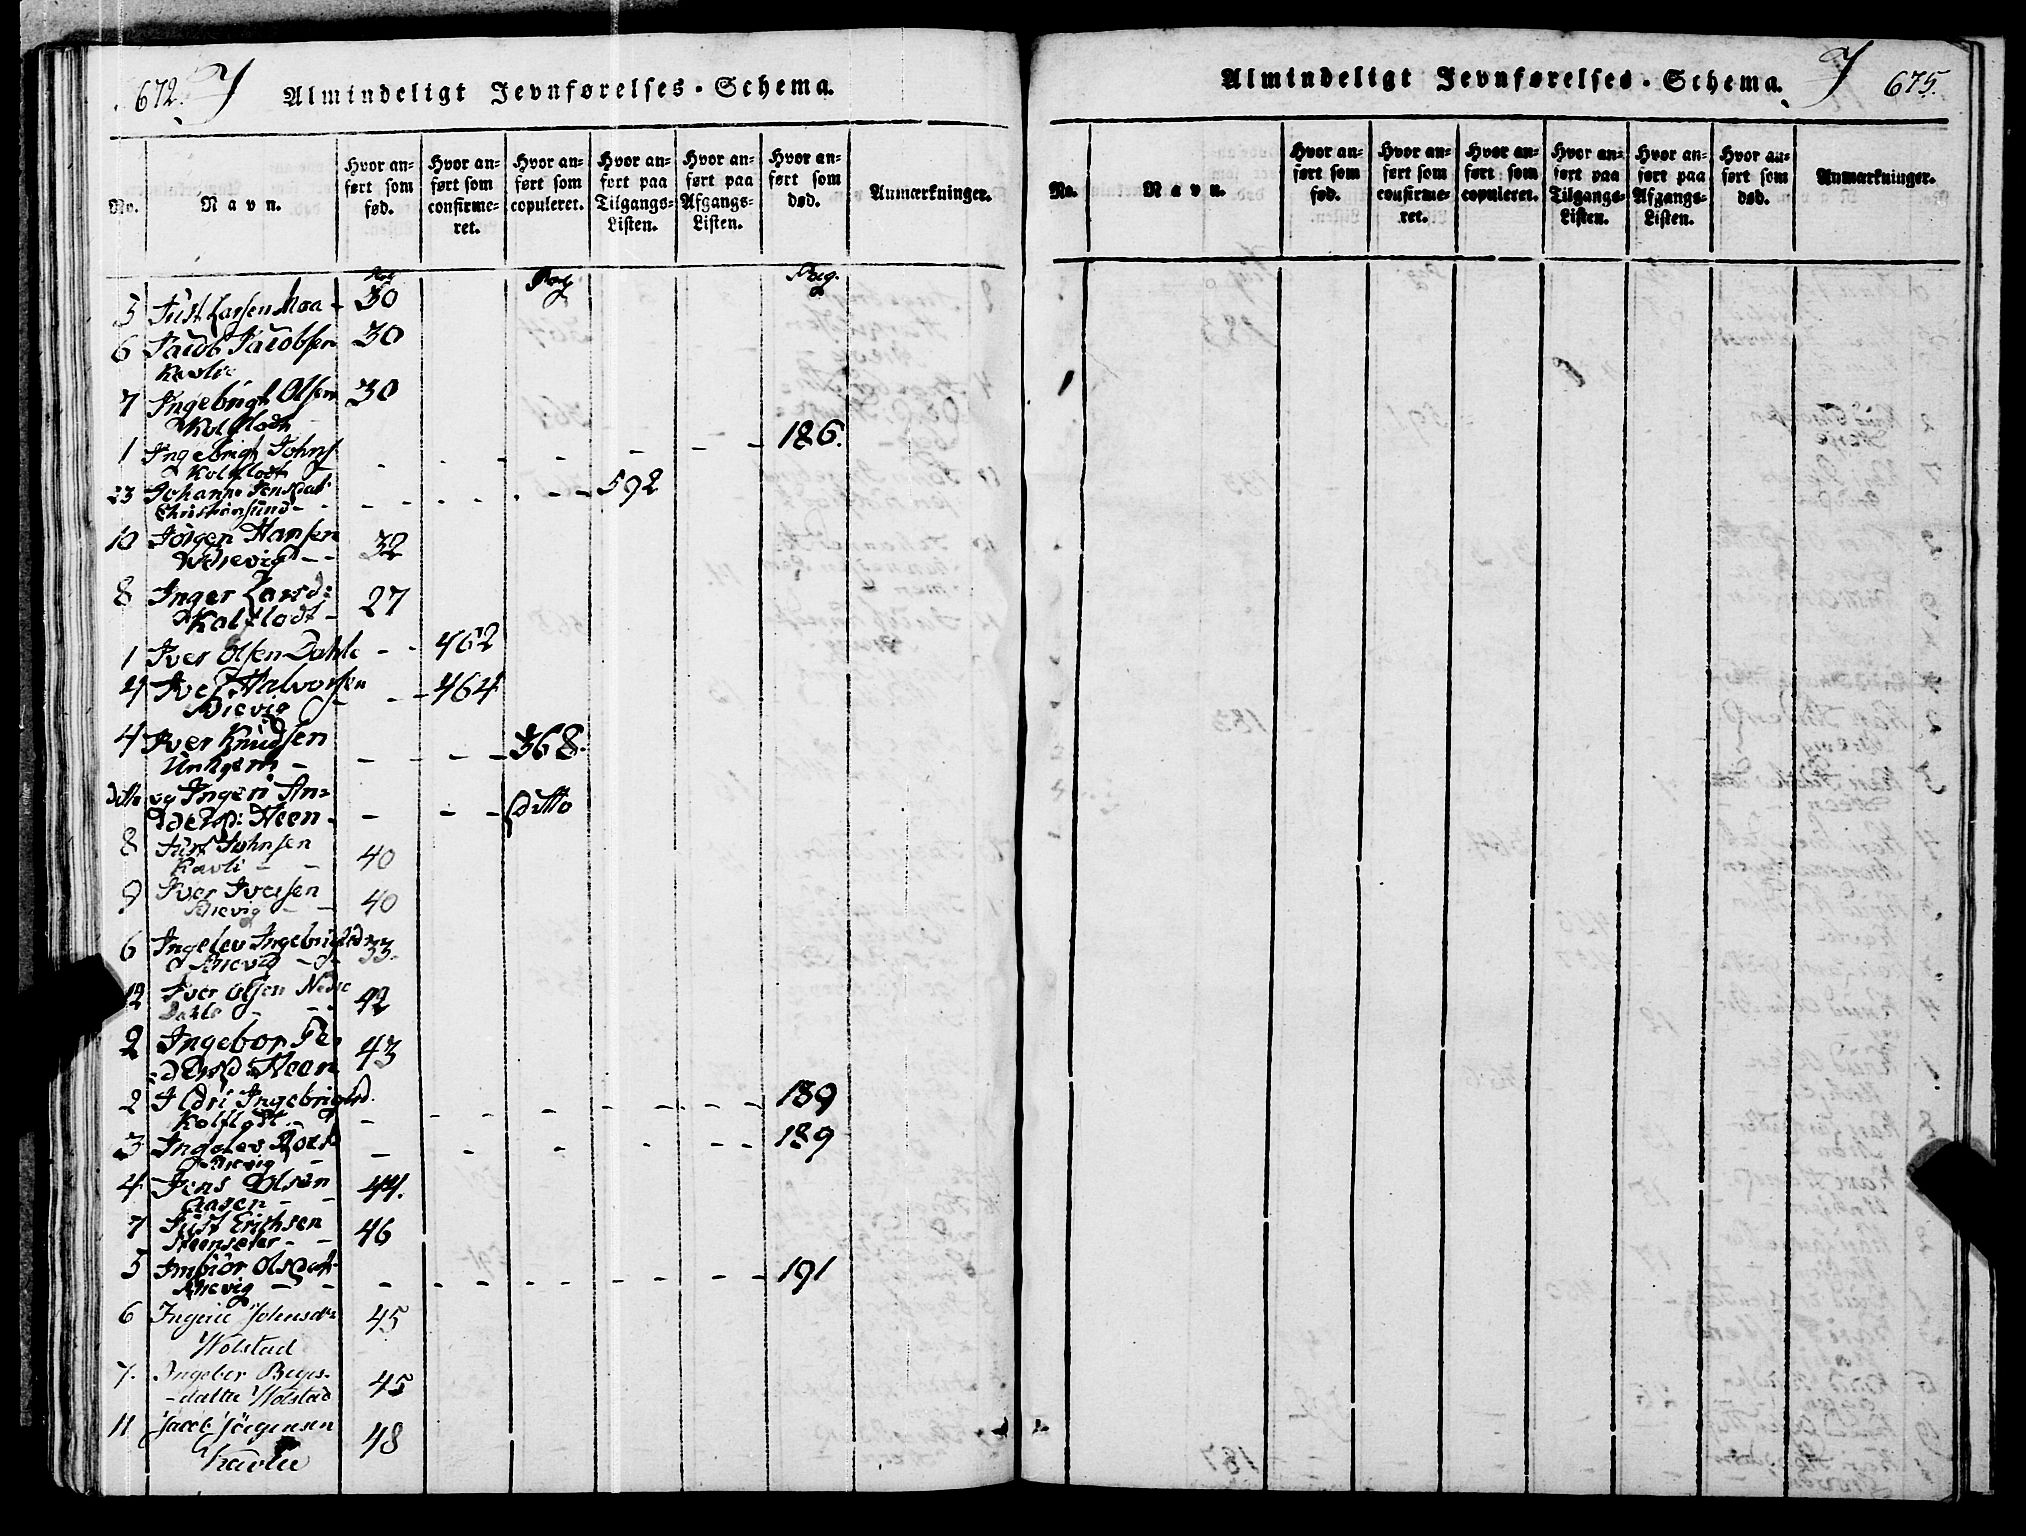 672. J Almindeligt Jevnførelses-Schema.
No. Navn. Hvor anført som fød. Hvor anført som confirmeret. Hvor anført som copuleret. Hvor anført paa Tilgangs-Listen. Hvor anført paa Afgangs-Listen. Hvor anført som død. Anmærkninger.
Pag. Pag. Pag.
5 Just Larsen Moa - 30
6 Jacob Jacobsen 30
Kavlie
7 Ingebrigt Olsen 30
Kolflodt
1 Ingebrigt Johns - - - - - 186.
Kolflodt
23 Johanne Jensdat - - - - 592
Christiansund
10 Jörgen Hansen
Brevig - - 32
8 Inger Larsd: 27
Kolflodt -
1 Iver Olsen Dahle - - 462
4 Iver Halvorsen - - 464
Brevig
4 Iver Knudsen
Unhjem - - - - 368.
ditto og Ingeri An=
dersd: Heen - - - - ditto
8 Just Johnsen
Kavli - - 40
9 Iver Iversen
Brevig - - 40
6 Ingelev Ingebrigtsd
Brevig - 33.
12 Iver Olsen Nedre
Dahle - - 42
2 Ingebor Pe= 43
dersd: Heen
2 Ildri Ingebrigtsd. - - - - - 189
Kolflodt -
3 Ingelev - - - - - 189
Brevig -
4 Jens Olsen 44.
Aasen - -
7 Just Erichsen 46
Steensæter - -
5 Imbiör Olsdat
Brevig - - - - - - - 191
6 Ingerie Johnsd= 45
Wolstad
7. Ingeber
-datter Wolstad 45
11 Jacob Jörgensen
Kavlie 48
Almindeligt Jevnførelses-Schema. J 675.
No. Navn. Hvor anført som fød. Hvor anført som confirmeret. Hvor anført som copuleret. Hvor anført paa Tilgangs-Listen. Hvor anført paa Afgangs-Listen. Hvor anført som død. Anmærkninger.